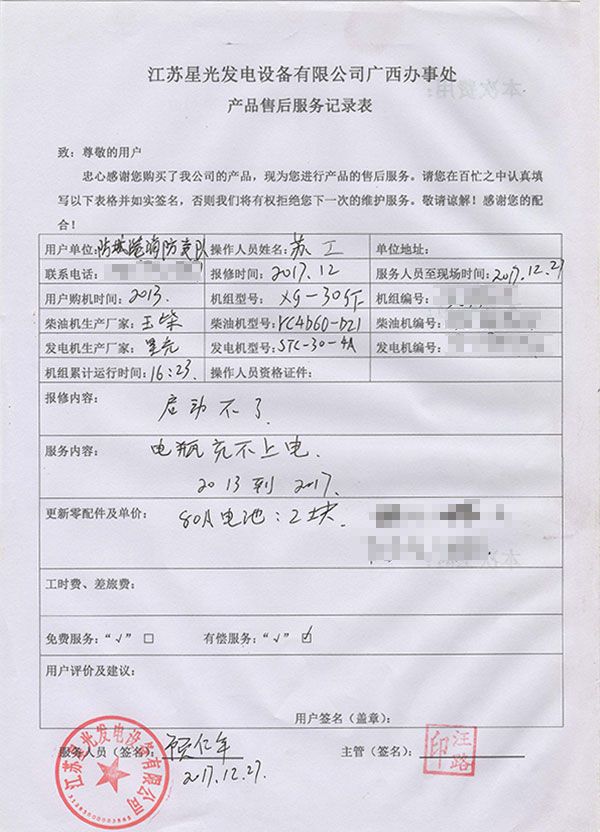 江苏星光发电设备有限公司广西办事处
产品售后服务记录表
致：尊敬的用户
忠心感谢您购买了我公司的产品，现为您进行产品的售后服务。请您在百忙之中认真填
写以下表格并如实签名，否则我们将有权拒绝您下一次的维护服务。敬请谅解！感谢您的配
合！
用户单位：防城港消防支队 操作人员姓名：苏工 单位地址：
联系电话： 报修时间：2017.12 服务人员至现场时间：2017.12.27
用户购机时间：2013. 机组型号：XG-30GF 机组编号：
柴油机生产厂家：玉柴 柴油机型号：YC4D60-D21 柴油机编号：
发电机生产厂家：星光 发电机型号：STC-30-4A 发电机编号：
机组累计运行时间：16:23. 操作人员资格证件：
报修内容：
启动不了
服务内容：电瓶充不上电.
2013到2017.
更新零配件及单价：80A电池：2块.
工时费、差旅费：
免费服务：“√” □ 有偿服务：“√” ☑
用户评价及建议：
用户签名（盖章）：
服务人员（签名）：顾仁年 主管（签名）：
2017.12.27.
江苏星光发电设备有限公司
汪路印
本次费用：